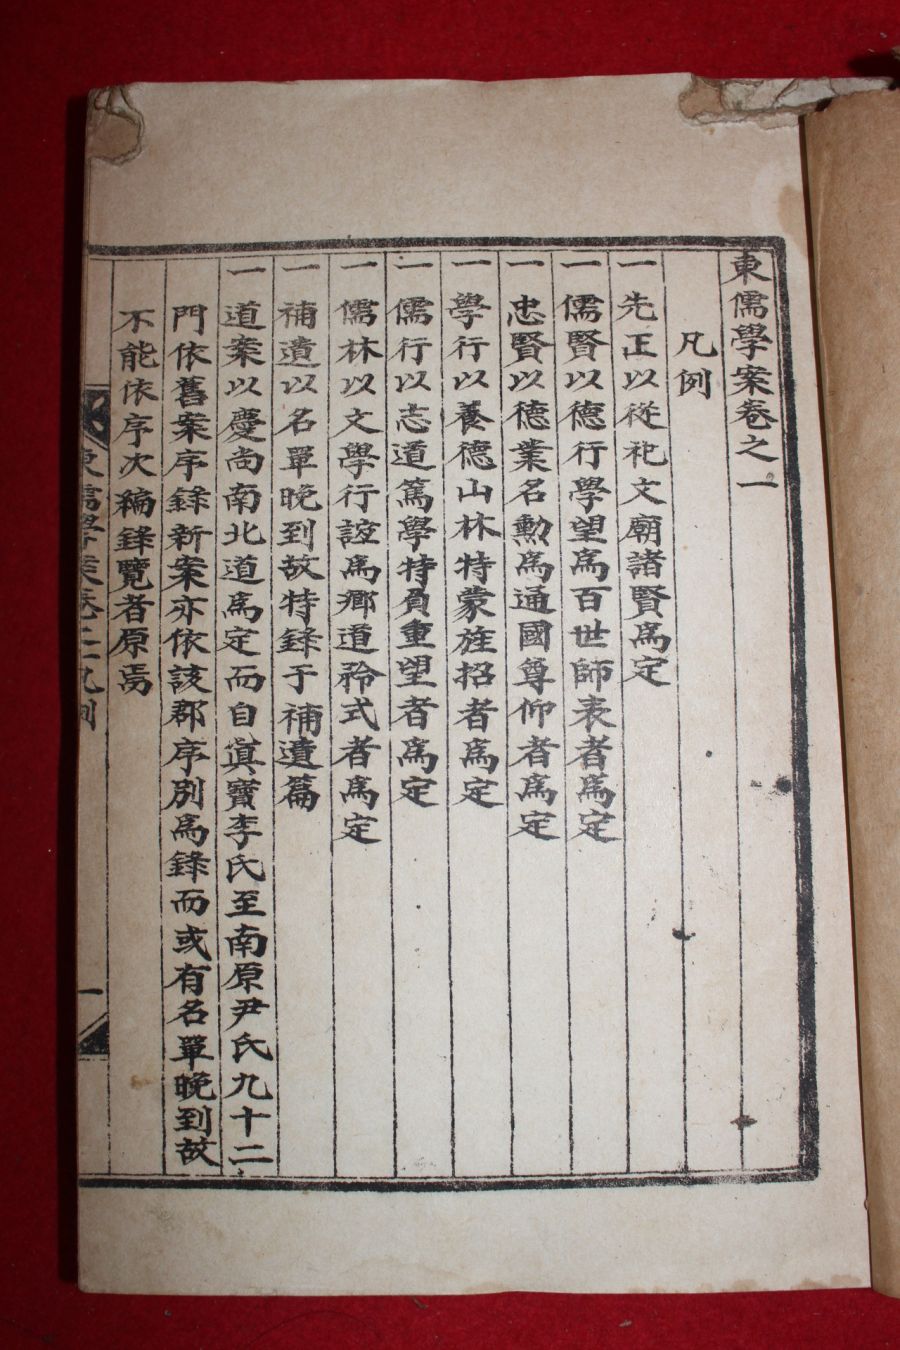 東儒學案卷之一
凡例
一 先正以從祀文廟諸賢爲定
一 儒賢以德行學望爲百世師表者爲定
一 忠賢以德業名勳爲通國尊仰者爲定
一 學行以養德山林特蒙旌招者爲定
一 儒行以志道篤學特負重望者爲定
一 儒林以文學行誼爲鄕道矜式者爲定
一 補遺以名單晩到故特錄于補遺篇
一 道案以慶尙南北道爲定而自眞寶李氏至南原尹氏九十二
門依舊案序錄新案亦依該郡序別爲錄而或有名單晩到故
不能依序次編錄覽者原焉
東儒學案卷之一凡例
一